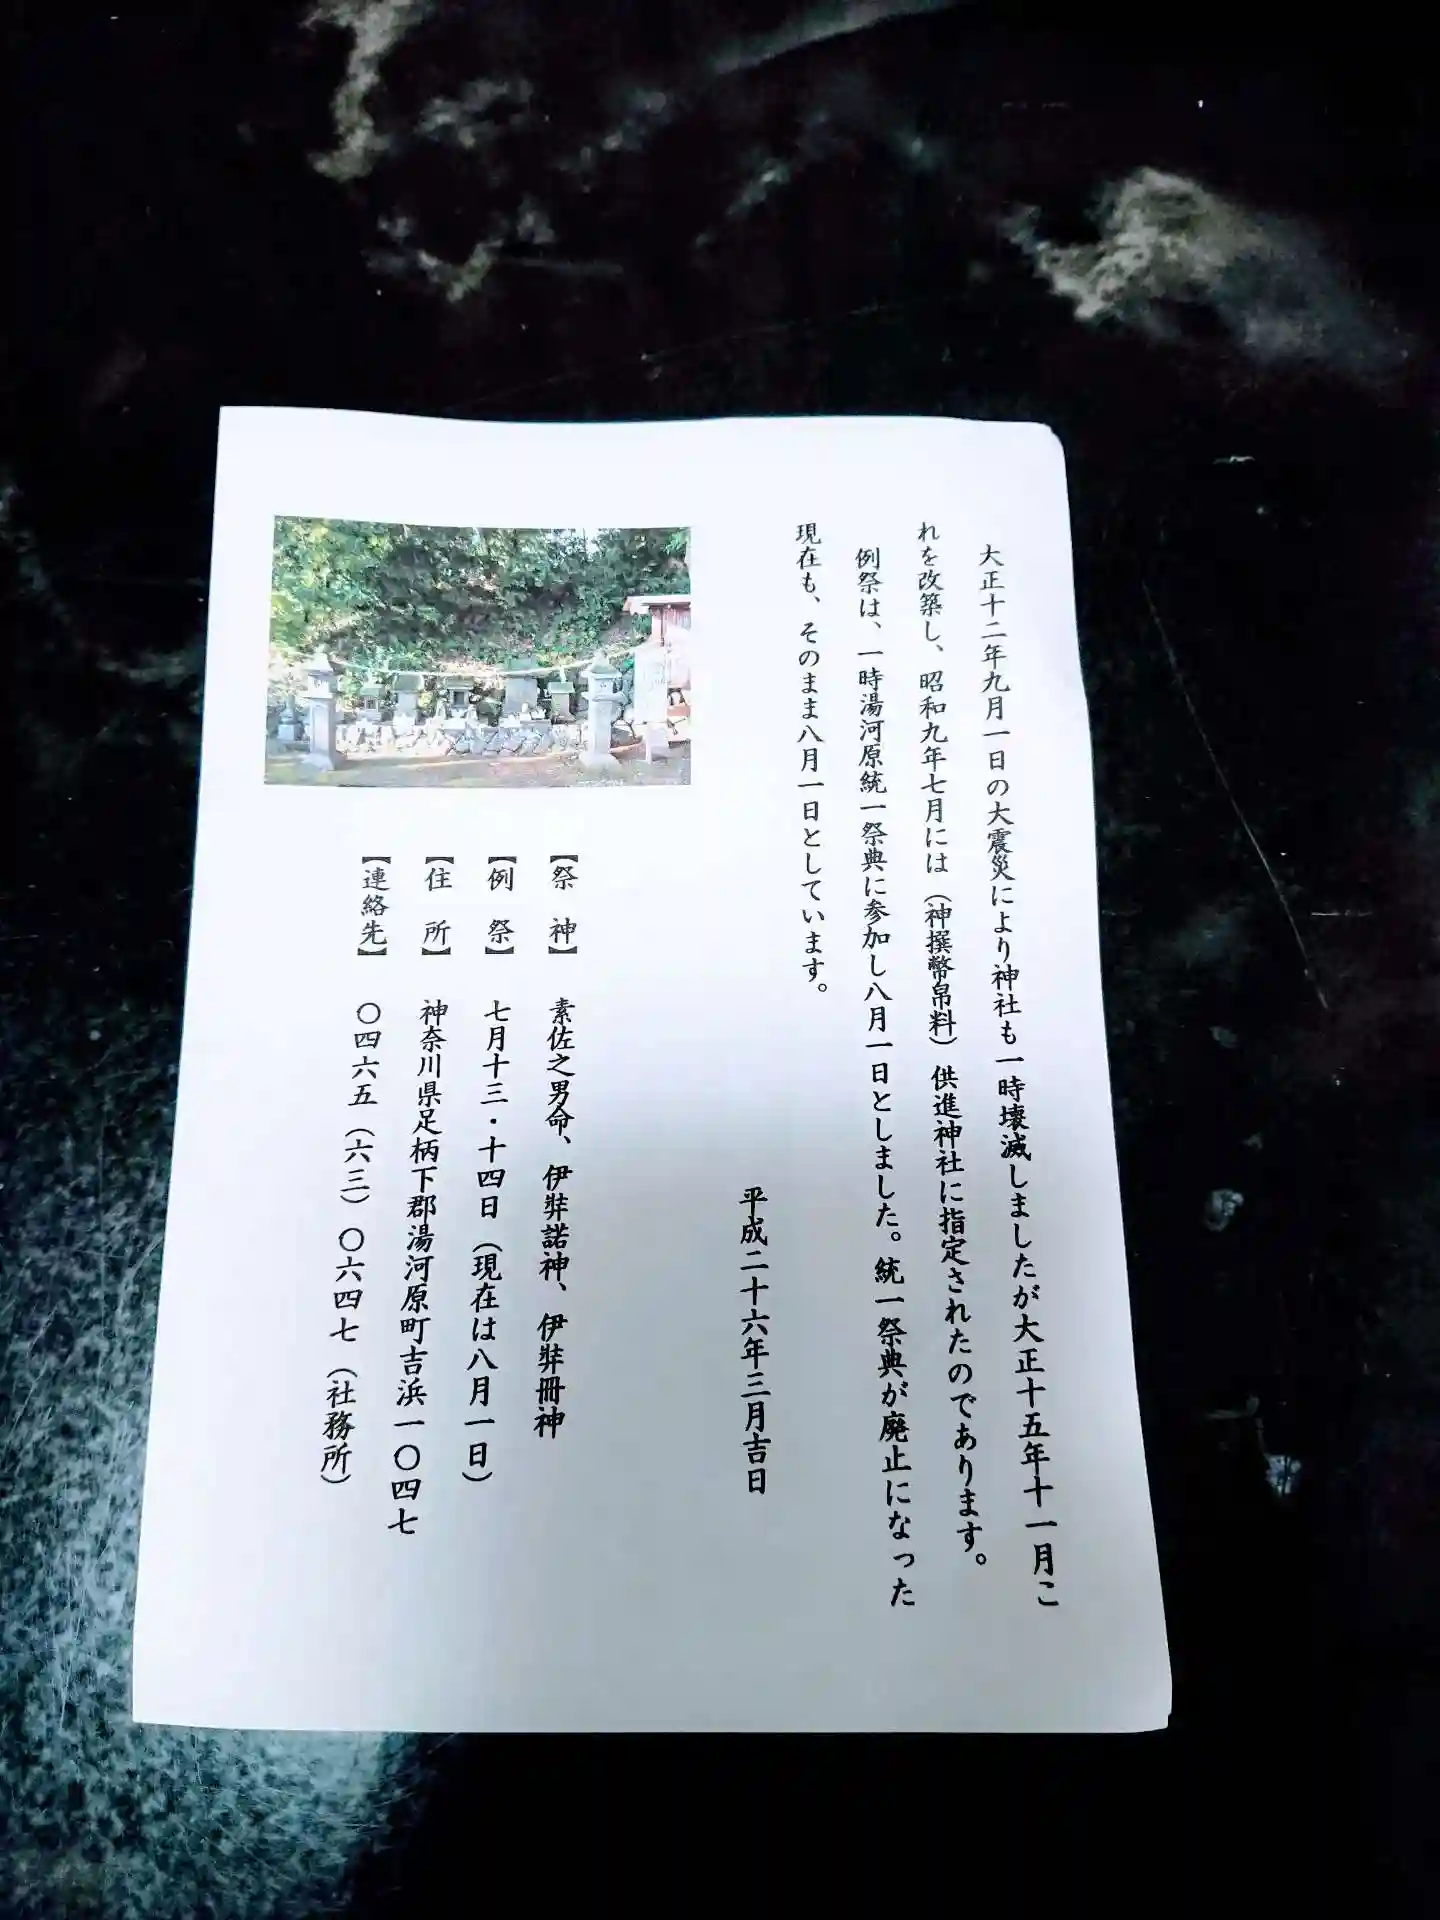 大正十二年九月一日の大震災により神社も一時壊滅しましたが大正十五年十一月こ
れを改築し、昭和九年七月には（神撰幣帛料）供進神社に指定されたのであります。
例祭は、一時湯河原統一祭典に参加し八月一日としました。統一祭典が廃止になった
現在も、そのまま八月一日としています。
平成二十六年三月吉日
【祭　神】　素佐之男命、伊弉諾神、伊弉冊神
【例　祭】　七月十三・十四日（現在は八月一日）
【住　所】　神奈川県足柄下郡湯河原町吉浜一〇四七
【連絡先】　〇四六五（六三）〇六四七（社務所）